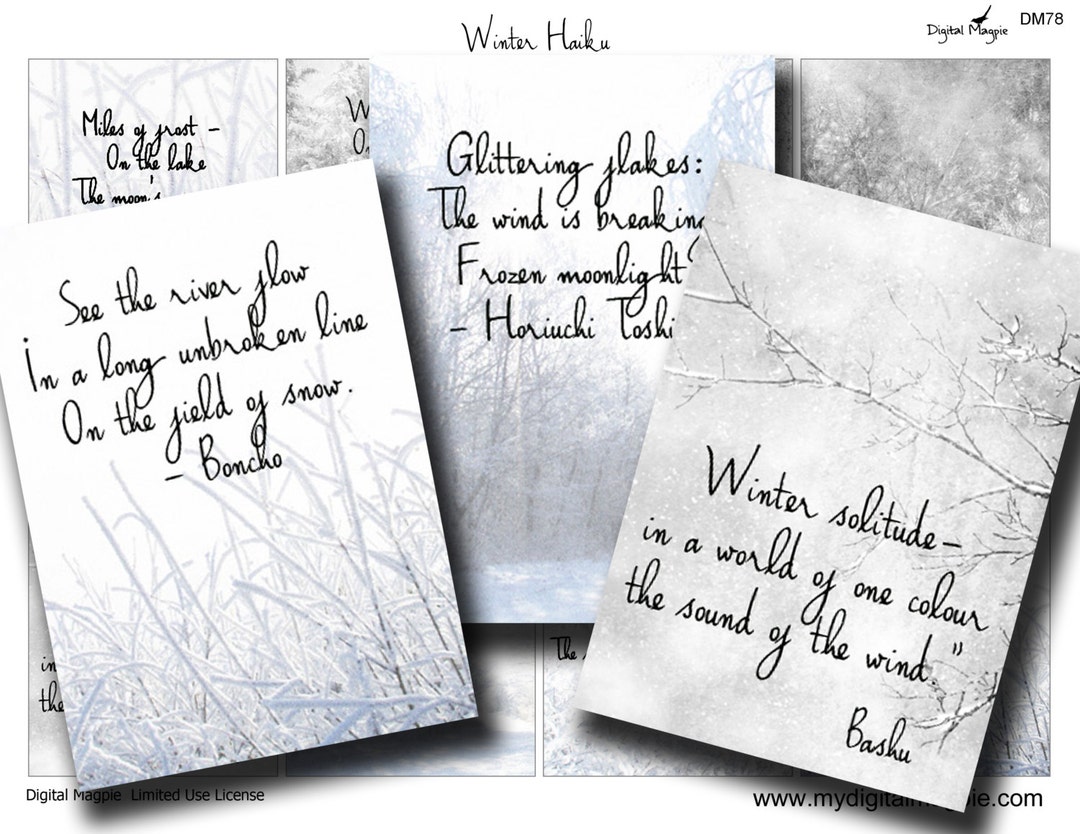 Winter Haiku
Digital Magpie
DM78
Miles of frost –
On the lake
The moon's
W
On
Glittering flakes:
The wind is breaking
Frozen moonlight
– Horiuchi Toshi
See the river flow
In a long unbroken line
On the field of snow.
– Boncho
Winter solitude–
in a world of one colour
the sound of the wind."
Bashu
in
the
The
Digital Magpie Limited Use License
www.mydigitalmagpie.com